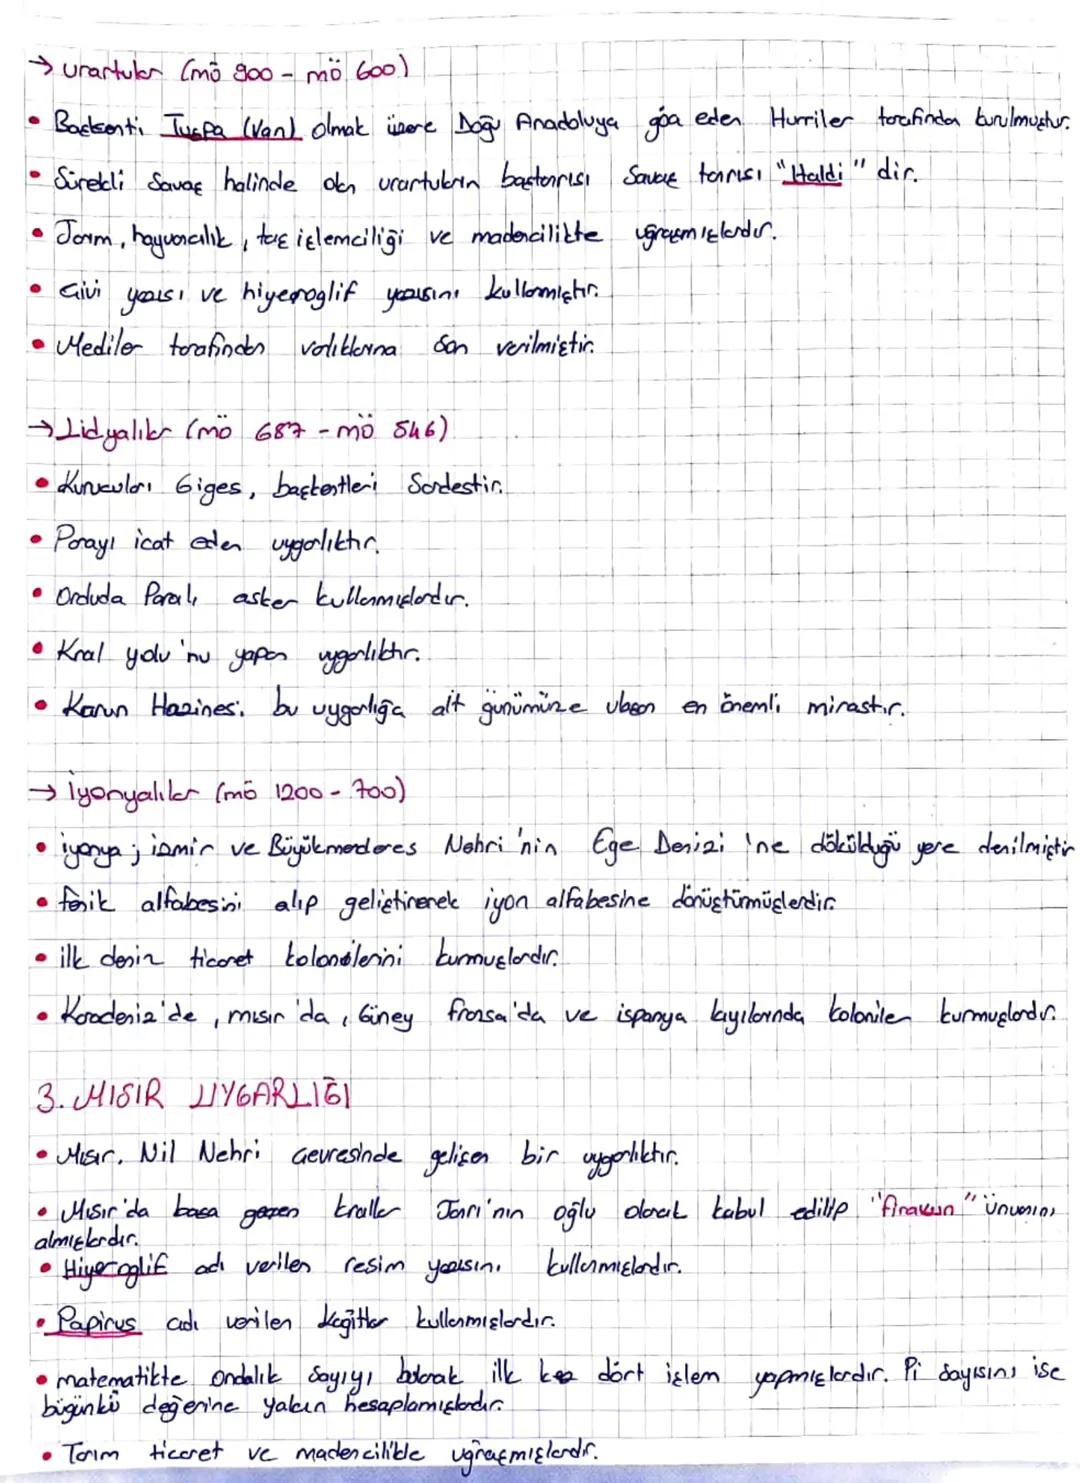 → Urartular (mö 900 - mö 600)
• Başkenti Tuşpa (Van) olmak üzere Doğu Anadoluya göç eden Hurriler tarafından kurulmuştur.
• Sürekli Savaş halinde olan urartuların baştanrısı Savaş tanrısı "Haldi" dir.
• Tarım, hayvancılık, taş işlemciliği ve madencilikte uğraşmışlardır.
• Çivi yazısı ve hiyeroglif yazısını kullanmıştır.
• Mediler tarafından varlıklarına son verilmiştir.
→ Lidyalılar (mö 687 - mö 546)
• Kurucuları Giges, başkentleri Sardestir.
• Parayı icat eden uygarlıktır.
• Orduda Paralı asker kullanmışlardır.
• Kral yolu'nu yapan uygarlıktır.
• Karun Hazinesi bu uygarlığa ait günümüze ulaşan en önemli mirastır.
→ İyonyalılar (mö 1200 - 700)
• iyonya; izmir ve Büyükmenderes Nehri'nin Ege Denizi'ne döküldüğü yere denilmiştir
• fenik alfabesini alıp geliştirerek iyon alfabesine dönüştürmüşlerdir.
• ilk deniz ticaret kolonilerini kurmuşlardır.
• Karadeniz'de, mısır'da, Güney fransa'da ve ispanya kıyılarında koloniler kurmuşlardır.
3. MISIR UYGARLIĞI
• Mısır, Nil Nehri Çevresinde gelişen bir uygarlıktır.
• Mısır'da başa geçen krallar Tanrı'nın oğlu olarak kabul edilip "firavun" ünvanını
almışlardır.
• Hiyeroglif adı verilen resim yazısını kullanmışlardır.
• Papirus adı verilen kağıtlar kullanmışlardır.
• matematikte ondalık sayıyı bularak ilk kez dört işlem yapmışlardır. Pi sayısını ise
bügünkü değerine yakın hesaplamışlardır.
• Tarım ticaret ve madencilikle uğraşmışlardır.